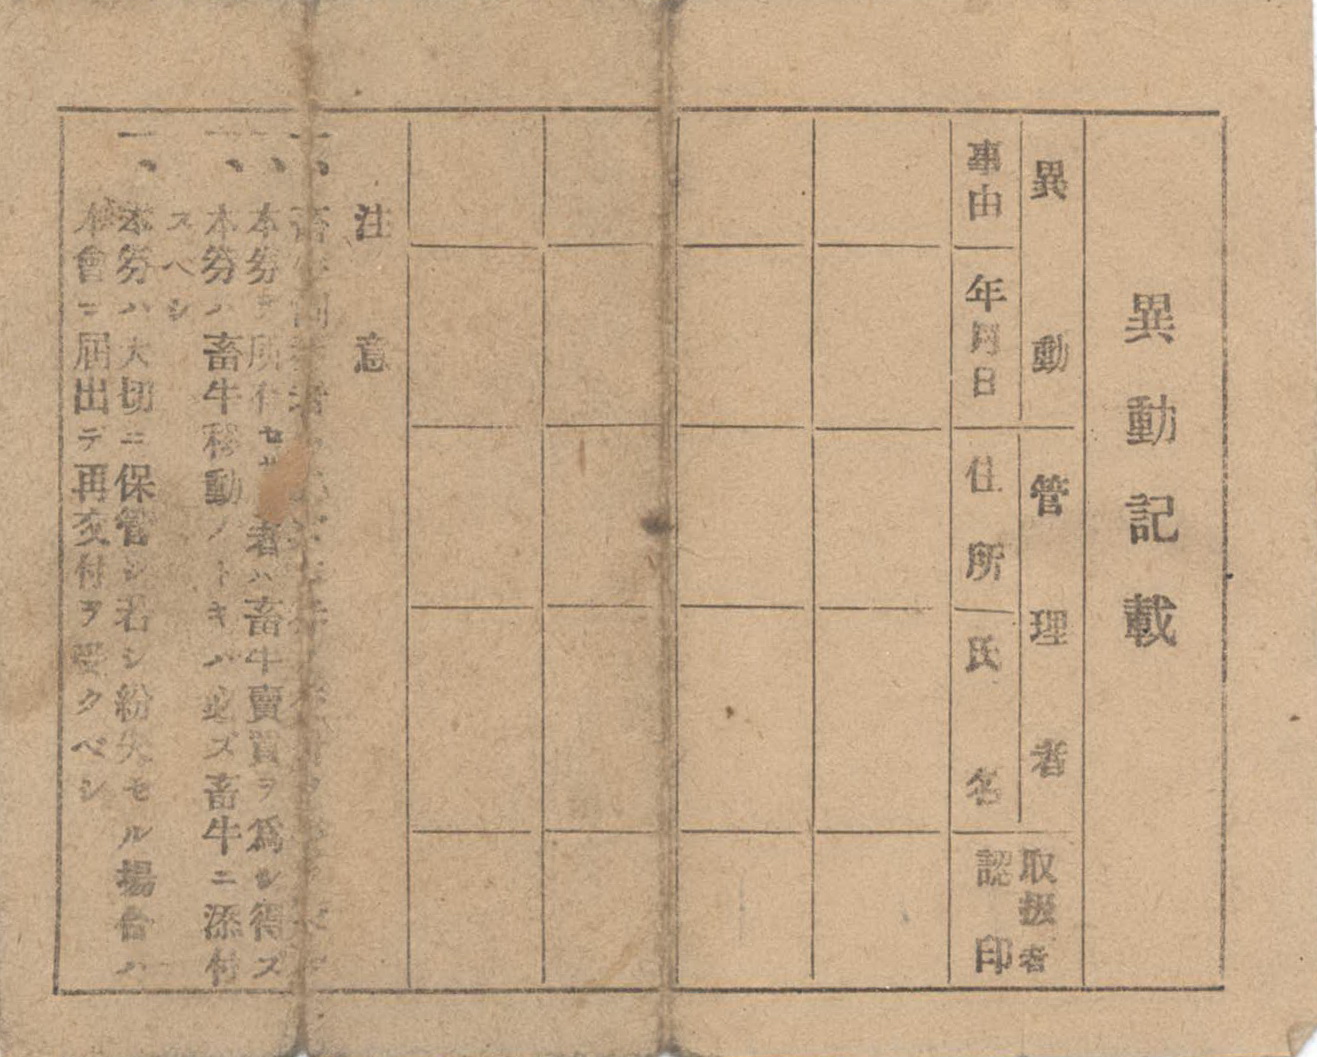 異動記載
異動
管理者
取扱者
事由
年月日
住所
氏名
認印
注意
一、
一、本券ヲ所有セサ者ハ畜牛賣買ヲ爲シ得ズ
一、本券ハ畜牛移動ノトキハ必ズ畜牛ニ添付
スベシ
一、本券ハ大切ニ保管シ若シ紛失セル場合ハ
本會ニ届出デ再交付ヲ受クベシ